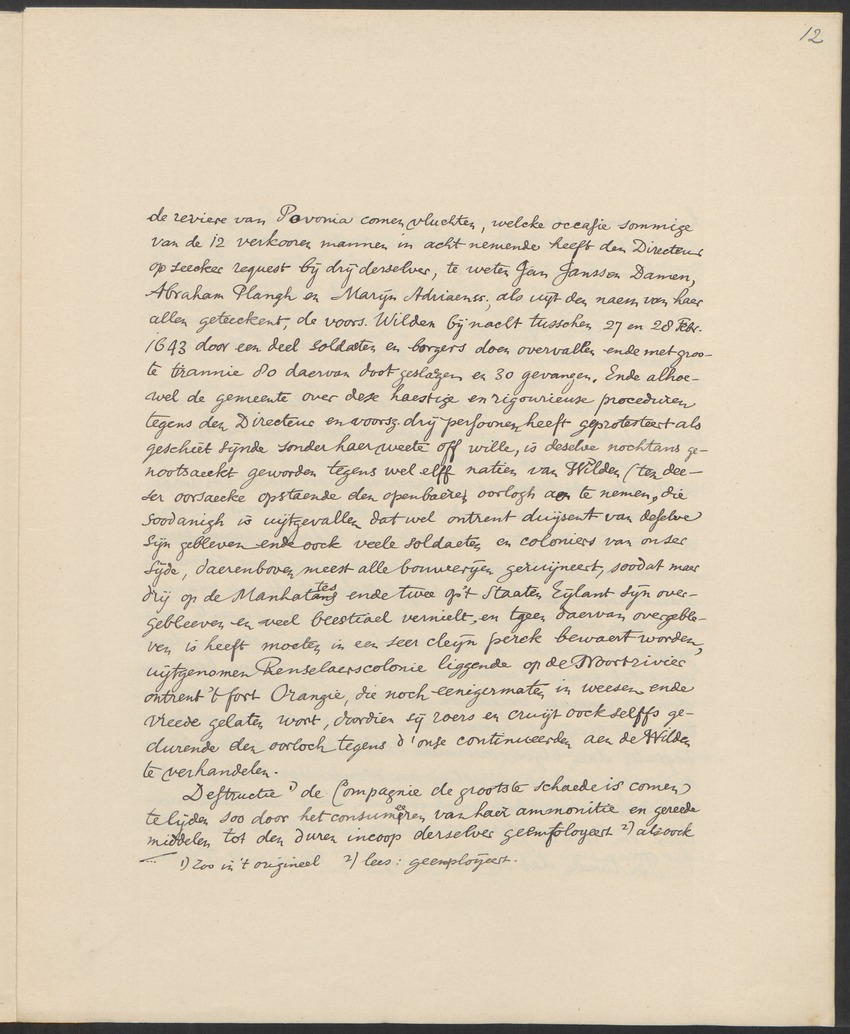 12
de reviere van Pavonia comen vluchten, welcke occasie sommige
van de 12 verkooren mannen in acht nemende heeft den Directeur
op seecker request bij drij derselver, te weten Jan Janssen Damen,
Abraham Plangh en Marijn Adriaenss., als uijt den naem van haer
allen geteeckent, de voors. Wilden bij nacht tusschen 27 en 28 Febr.
1643 door een deel soldaten en borgers doen overvallen ende met groo-
te tirannie 80 daervan doot geslagen en 30 gevangen. Ende alhoe-
wel de gemeente over dese haestige en rigourieuse proceduren
tegens den Directeur en voorsz. drij persoonen heeft geprotesteert als
geschiet sijnde sonder haer weete off wille, is deselve nochtans ge-
nootsaeckt geworden tegens wel elff natien van Wilden (ten dee-
ser oorsaecke opstaende den openbaeren oorlogh aen te nemen, die
soodanigh is uijtgevallen dat wel ontrent duijsent van deselve
sijn gebleven ende oock veele soldaeten en coloniers van onser
sijde, daerenboven meest alle bouwerijen geruijneert, soodat maer
drij op de Manhatans tes ende twee op 't Staaten Eijlant sijn over-
gebleeven en veel beestiael vernielt, en tgeen daervan overgeble-
ven is heeft moeten in een seer cleijn perck bewaert worden,
uijtgenomen Renselaerscolonie liggende op de Noortrivier
ontrent 't fort Orangie, die noch eenigermaten in weesen ende
vreede gelaten wort, doordien sij roers en cruijt oock selffs ge-
durende den oorloch tegens d'onse continueerden aen de Wilden
te verhandelen.
Destructie 1) de Compagnie de grootste schaede is comen
te lijden soo door het consumeeren van haer ammonitie en gereede
middelen tot den duren incoop derselver geemploijeert 2) als oock
1) Zoo in 't origineel 2) lees: geemploijeert.